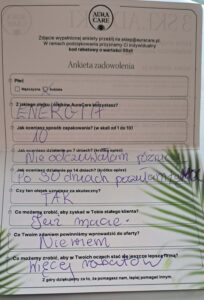 AURA
CARE
Zdjęcie wypełnionej ankiety prześlij na sklep@auracare.pl
W ramach podziękowania przyznamy Ci indywidualny
kod rabatowy o wartości 50zł
Ankieta zadowolenia
Płeć
Mężczyzna Kobieta
Z jakiego olejku AuraCare korzystasz?
ENERGIA
Jak oceniasz sposób zapakowania? (w skali od 1 do 10)
10
Jak oceniasz działanie po 7 dniach? (krótki opis)
Nie odczuwałam różnicy
Jak oceniasz działanie po 14 dniach? (krótki opis)
Po 30 dniach
Czy ten olejek uznajesz za skuteczny?
TAK
Co możemy zrobić, aby zyskać w Tobie stałego klienta?
Już macie
Co Twoim zdaniem powinniśmy wprowadzić do oferty?
Nie wiem
Co możemy zrobić, aby w Twoich oczach stać się jeszcze lepszą firmą?
więcej rabatów
Z góry dziękujemy za to, że pomagasz nam, lepiej pomagać innym.